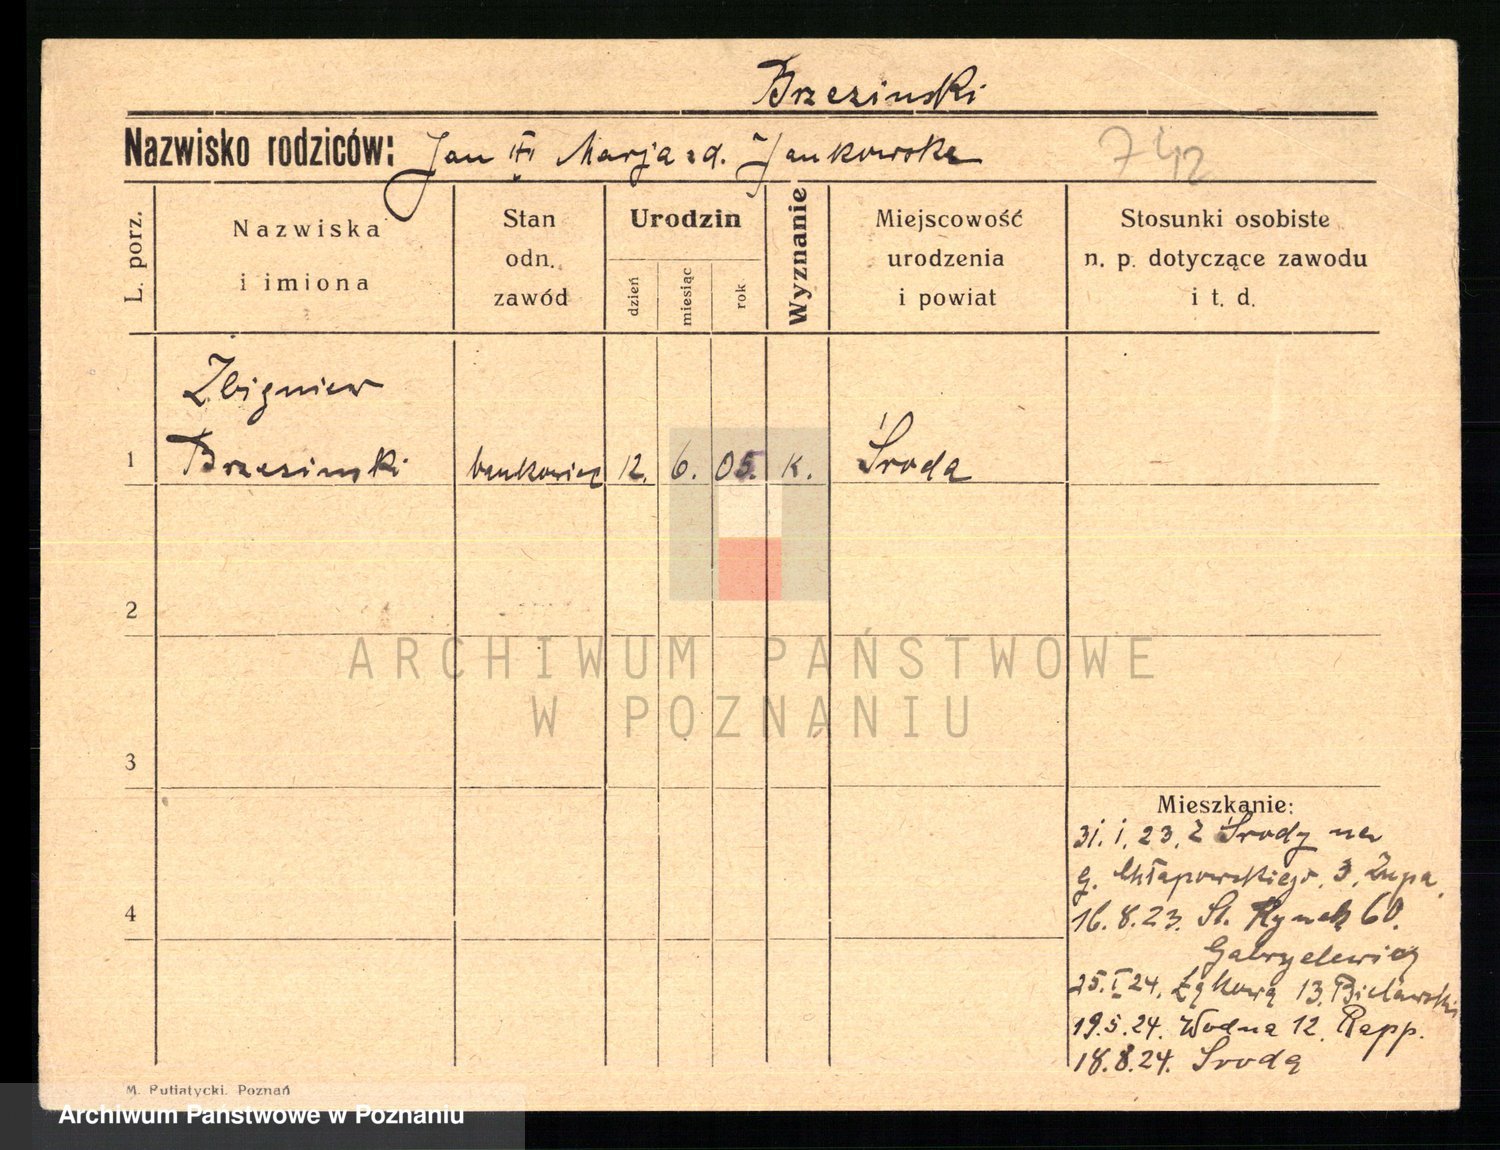 Brzezinski
Nazwisko rodziców: Jan Marja zd. Jankowska
742
L. porz.
Nazwiska
i imiona
Stan
odn.
zawód
Urodzin
dzień
miesiąc
rok
Wyznanie
Miejscowość
urodzenia
i powiat
Stosunki osobiste
n. p. dotyczące zawodu
i t. d.
Zbigniew
1 Brzezinski bankowiec 12. 6. 05. K. Środa
2
3
4
Mieszkanie:
31. 1. 23. Z Środy na
G. Chłapowskiego. 3. Żupa.
16. 8. 23. St. Rynek 60.
Gabryelewicz
25. I 24. Łąkowa 13. Bielawski
19. 5. 24. Wodna 12. Rapp.
18. 8. 24. Środa
ARCHIWUM PAŃSTWOWE
W POZNANIU
M. Putiatycki. Poznań
Archiwum Państwowe w Poznaniu